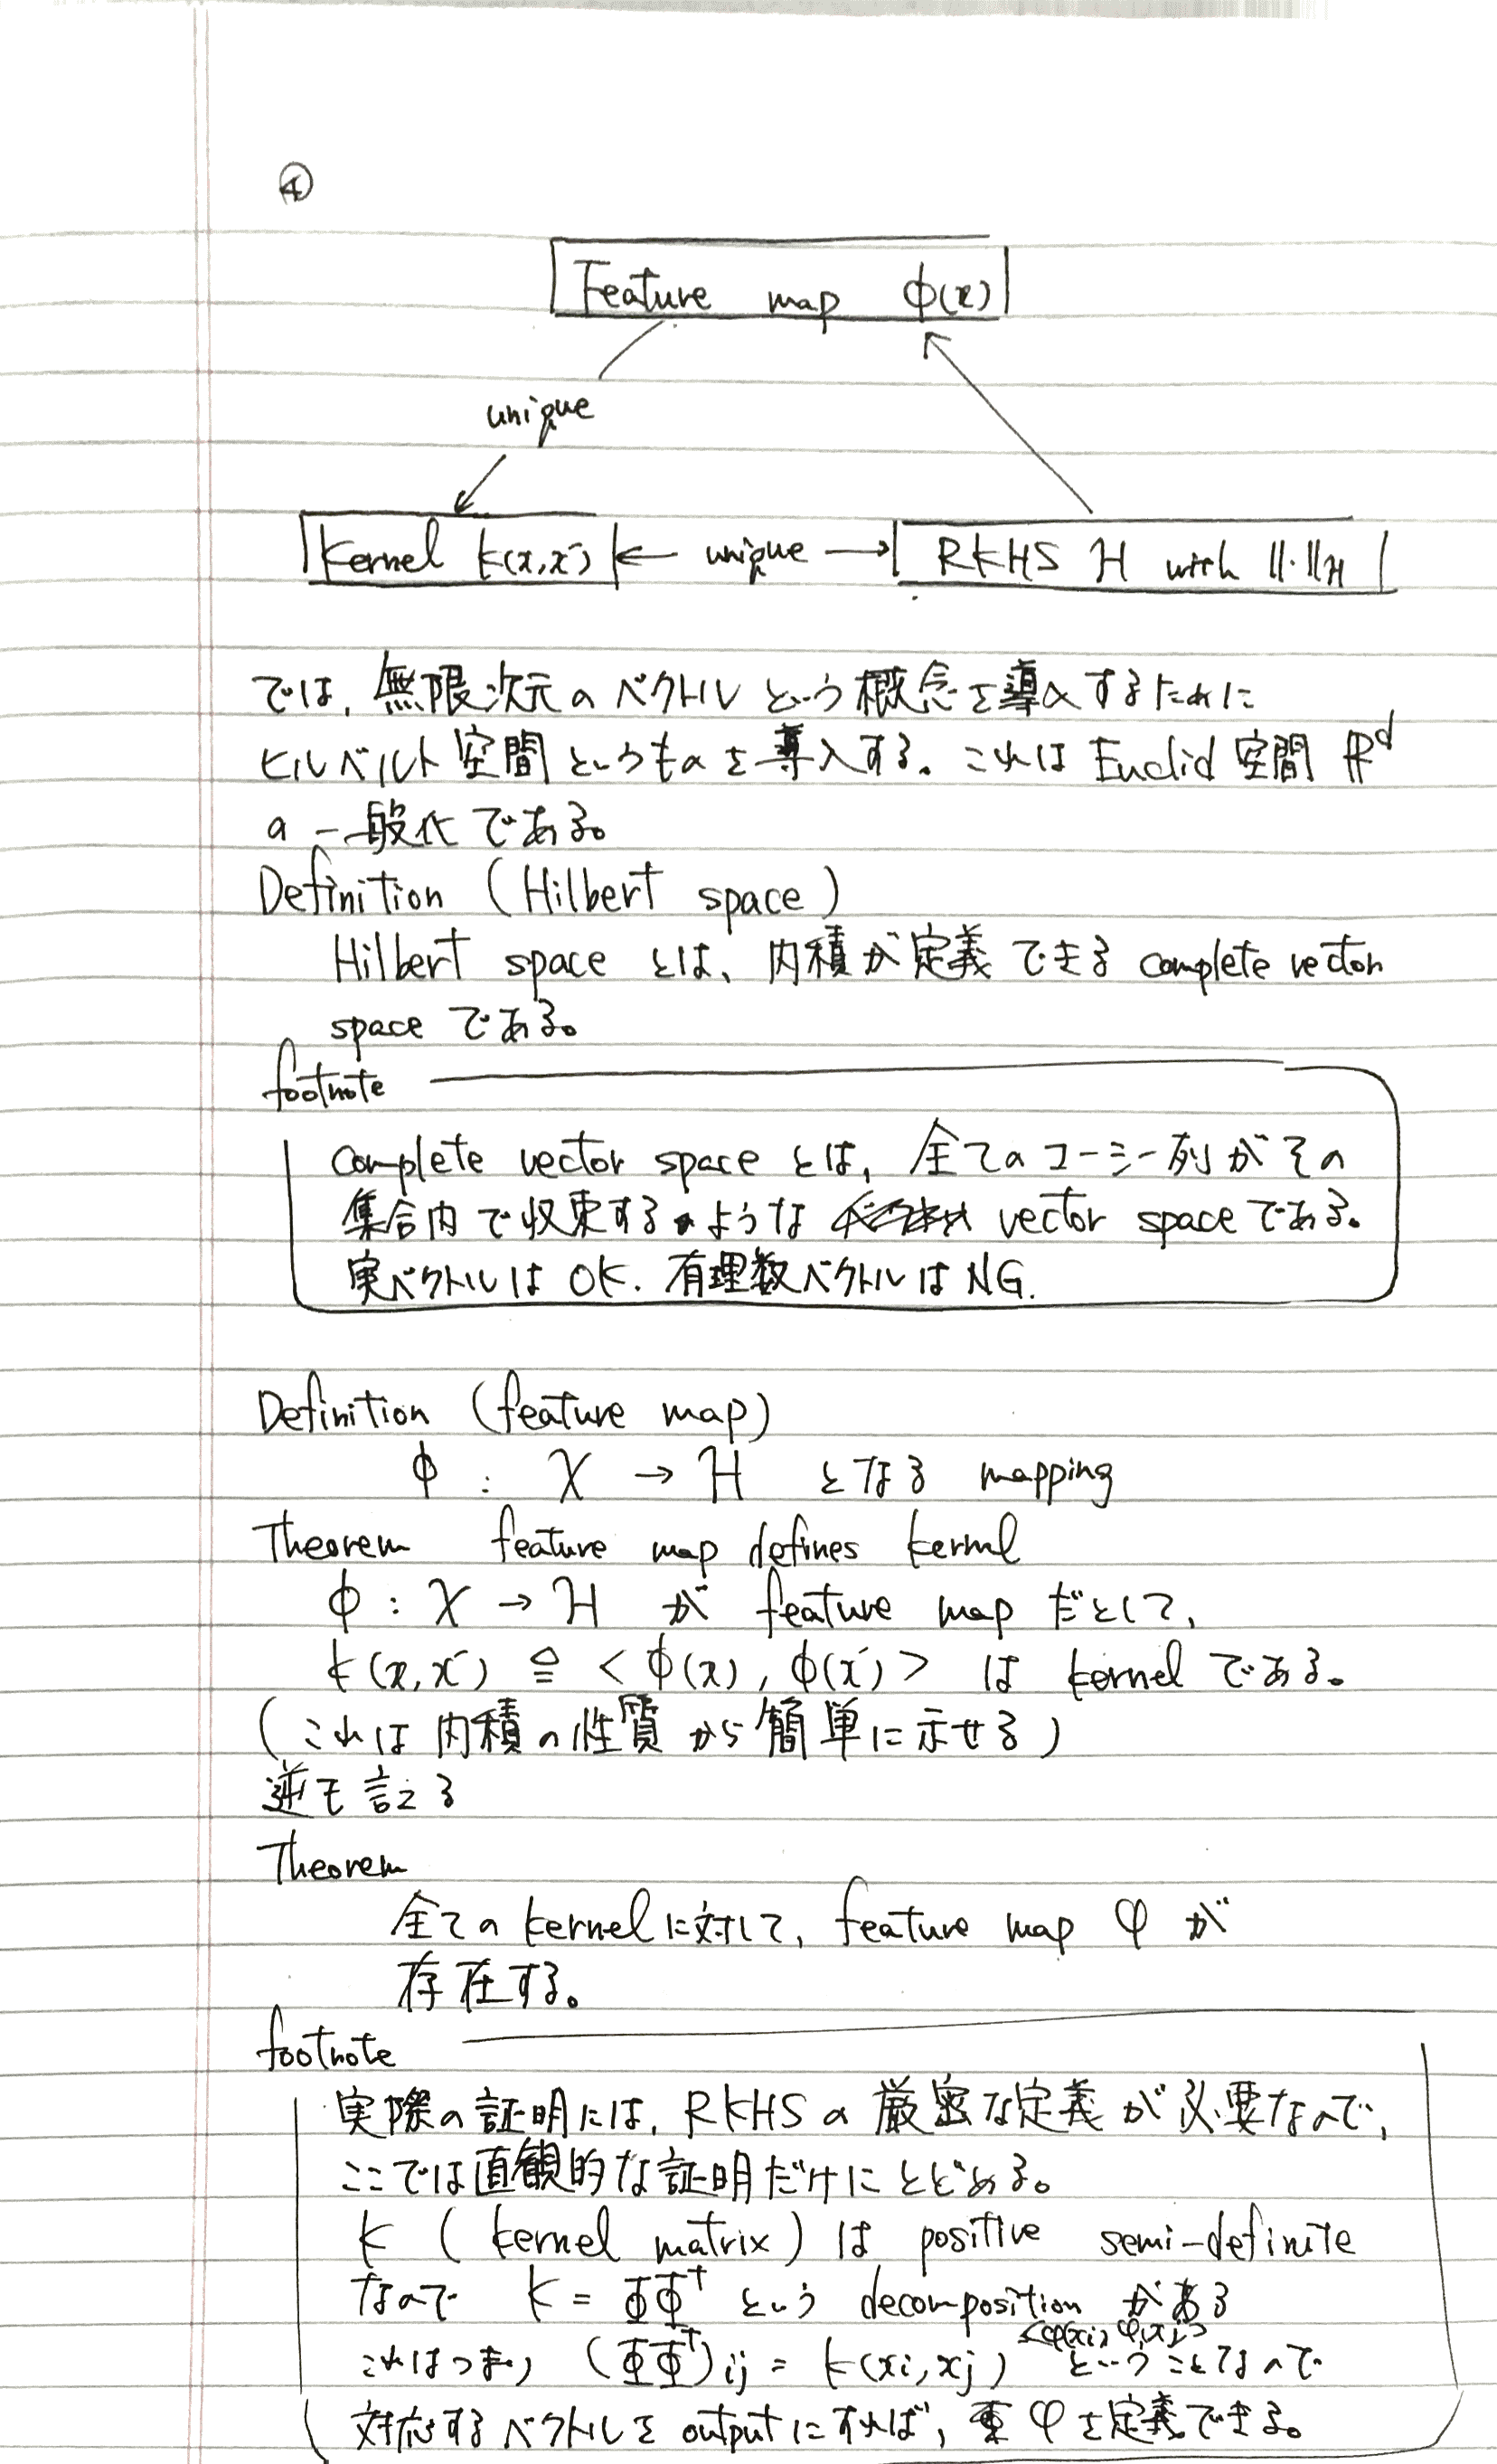 ④
Feature map φ(x)
unique
Kernel k(x,x') ← unique → RKHS H with ||·||H
では, 無限次元のベクトルという概念を導入するために
ヒルベルト空間というものを導入する。これは Euclid 空間 ℝᵈ
の一般化である。
Definition (Hilbert space)
Hilbert space とは、内積が定義できる complete vector
space である。
footnote
complete vector space とは, 全てのコーシー列がその
集合内で収束するような vector space である。
実ベクトルは OK. 有理数ベクトルは NG.
Definition (feature map)
φ : X → H となる mapping
Theorem feature map defines kernel
φ : X → H が feature map だとして,
k(x,x') ≙ <φ(x), φ(x')> は kernel である。
(これは内積の性質から簡単に示せる)
逆も言える
Theorem
全ての kernel に対して, feature map φ が
存在する。
footnote
実際の証明には, RKHS の厳密な定義が必要なので,
ここでは直観的な証明だけにとどめる。
K (kernel matrix) は positive semi-definite
なので K = ΦΦ^T という decomposition がある
<φ(xi), φ(xj)>
これはつまり (ΦΦ^T)ij = k(xi, xj) ということなので
対応するベクトルを output にすれば, φ を定義できる。